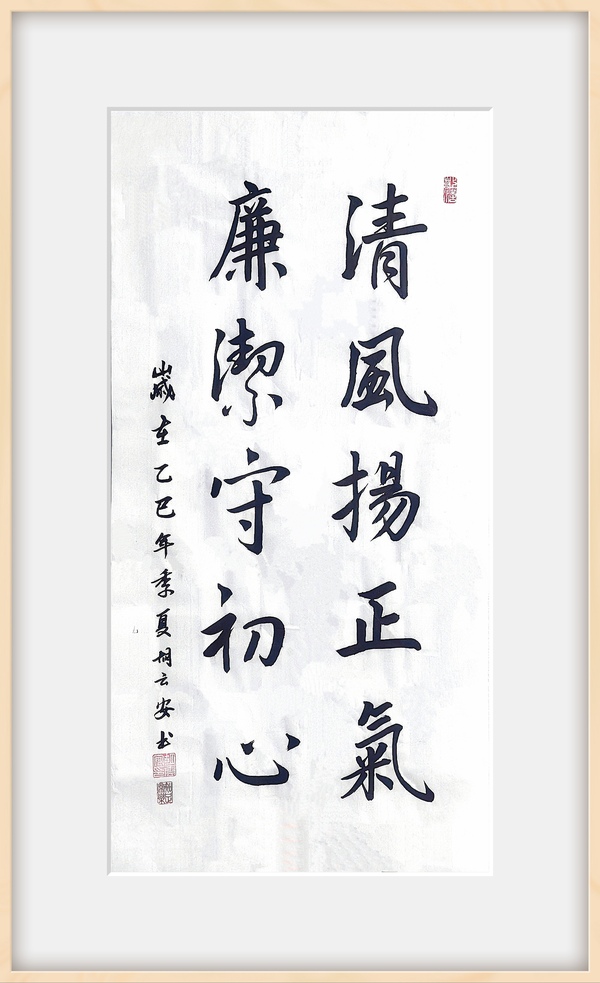 清風揚正氣
廉潔守初心
歲在乙巳年季夏胡云安书